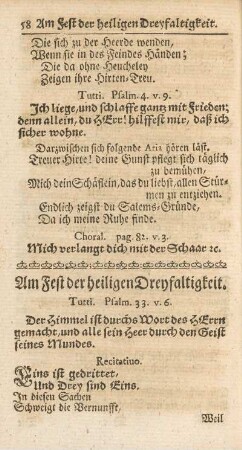 58 Am Fest der heiligen Dreyfaltigkeit.
Die sich zu der Heerde wenden,
Wenn sie in des Feindes Händen;
Die da ohne Heucheley
Zeigen ihre Hirten-Treu.
Tutti. Psalm. 4. v. 9.
Ich liege, und schlaffe gantz mit Frieden;
denn allein, du HErr! hilffest mir, daß ich
sicher wohne.
Darzwischen sich folgende Aria hören läst.
Treuer Hirte! deine Gunst pflegt sich täglich
zu bemühen,
Mich dein Schäflein, das du liebst, allen Stür-
men zu entziehen.
Endlich zeigst du Salems-Gründe,
Da ich meine Ruhe finde.
Choral. pag. 82. v. 3.
Mich verlangt dich mit der Schaar ꝛc.
Am Fest der heiligen Dreyfaltigkeit.
Tutti. Psalm. 33. v. 6.
Der Himmel ist durchs Wort des HErrn
gemacht, und alle sein Heer durch den Geist
seines Mundes.
Recitativo.
Eins ist gedrittet,
Und Drey sind Eins.
In diesen Sachen
Schweigt die Vernunfft,
Weil